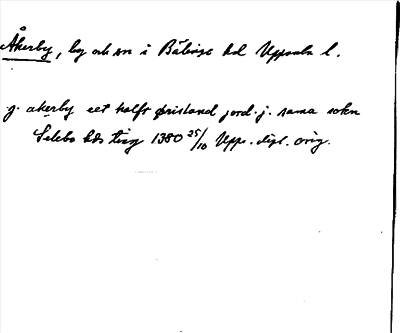 Åkerby, by och sn i Bälinge hd Uppsala l.
j. akerby eet halft ørisland jord. j. sama sokn
Selebo hds ting 1380 25/10 Upps. dipl. orig.